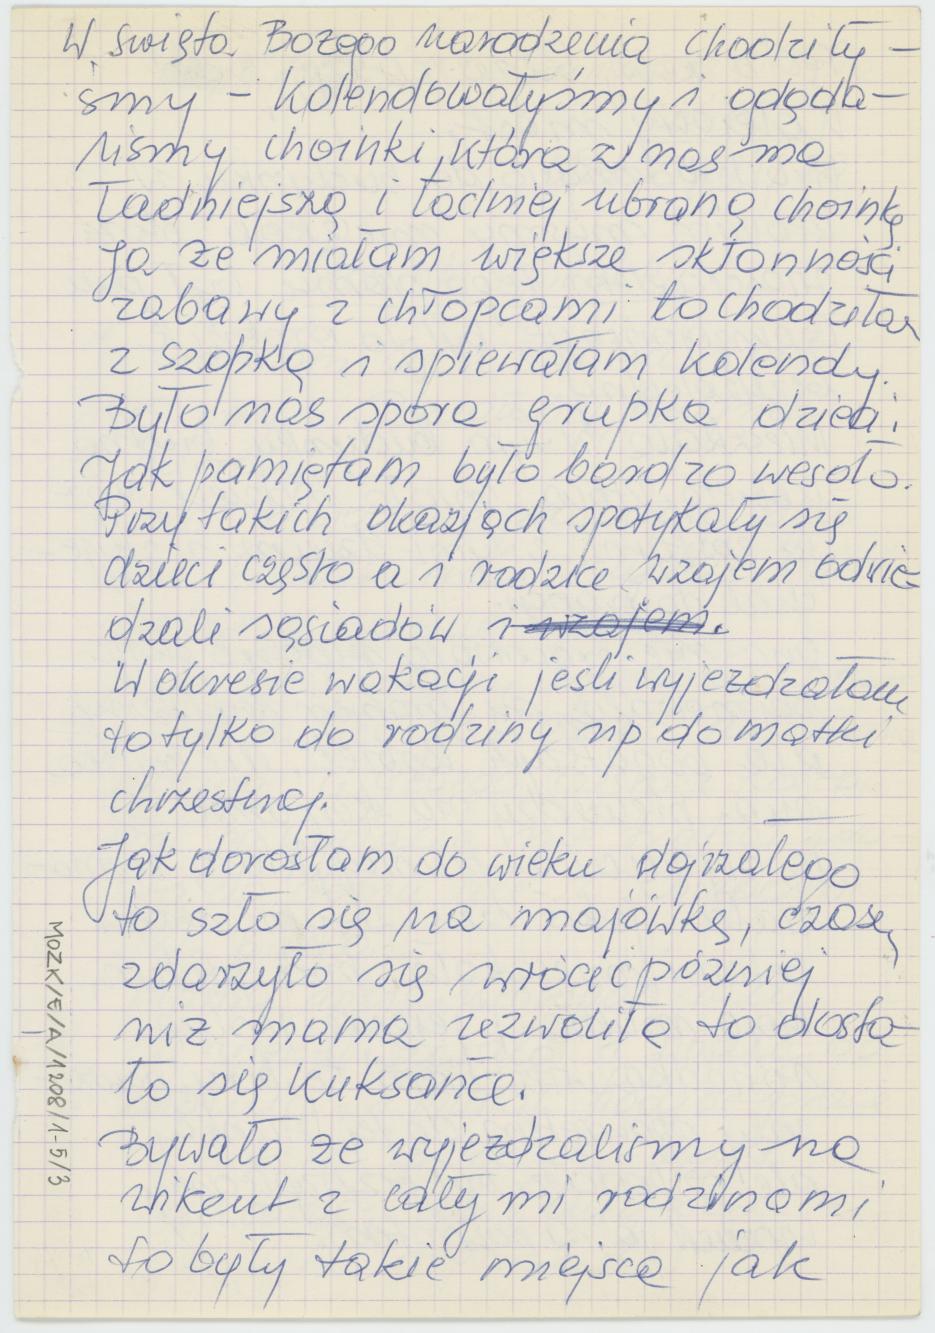 W święta Bozego narodzenia chodziły –
śmy – kolendowałyśmy i ogląda –
liśmy choinki, która z nas ma
ładniejszą i ładniej ubraną choinkę
Ja że miałam większe skłonności
zabawy z chłopcami to chodziłam
z szopką i spiewałam kolendy.
Było nas spora grupka dzieci.
Jak pamiętam było bardzo wesoło.
Przy takich okazjach spotykały się
dzieci często a i rodzice wzajem odwie-
dzali sąsiadów i wzajem.
W okresie wakacji jesli wyjezdzałam
to tylko do rodziny np do matki
chrzestnej.
Jak dorosłam do wieku dojrzałego
to szło się na majówkę, czasem
zdarzyło się wrócić później
niz mama zezwoliła to dosta –
ło się kuksańce.
Bywało ze wyjezdzalismy na
wikent z całymi rodzinami
to były takie miejsca jak
MOZK/E/A/1208/1-5/3